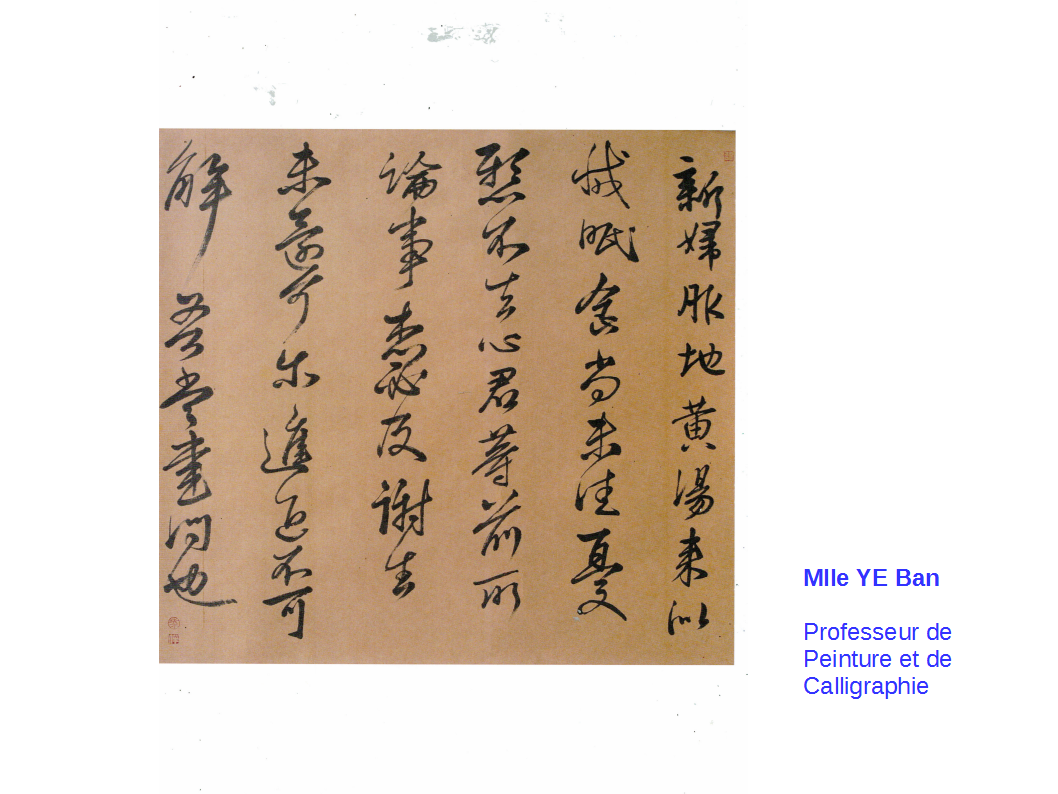 新婦服地黄湯来似
減眠食尚未佳憂
懸不去心君等前所
論事想必及謝生
未還可尔進退不可
解吾當書問也
Mlle YE Ban
Professeur de
Peinture et de
Calligraphie